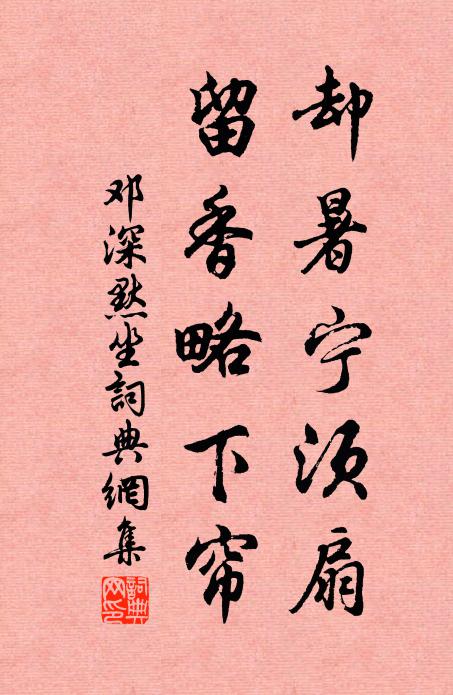 却暑宁须扇
留香略下帘
邓深默坐詞典網集
詞典网印